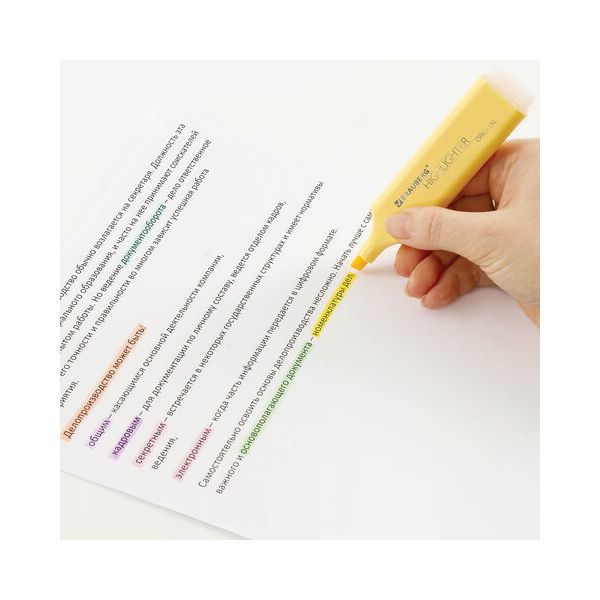 водство обычно возлагается на секретаря. Должность эта
рального образования, и часто на нее принимают соискателей
ытом работы. Но ведение документооборота – дело ответственное
его точности и правильности во многом зависит успешная работа
приятия.
Делопроизводство может быть:
общим – касающимся основной деятельности компании,
кадровым – для документации по личному составу, ведется отделом кадров,
секретным – встречается в некоторых государственных структурах и имеет нормативы
ведения,
электронным – когда часть информации передается в цифровом формате.
Самостоятельно освоить основы делопроизводства несложно. Начать лучше с сам
важного и основополагающего документа – номенклатуры дел.
BRAUBERG®
HIGHLIGHTER
ORIGINAL